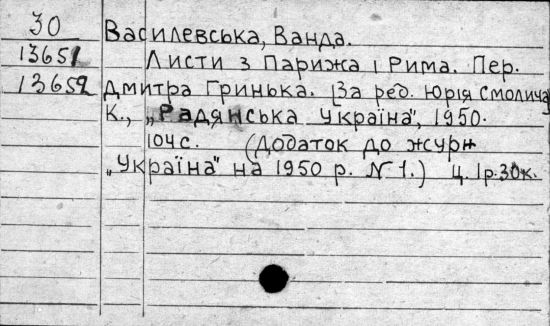 30 Василевська, Ванда.
13651 Листи з Парижа і Рима. Пер.
13652 Дмитра Гринька. [За ред. Юрія Смолича]
К., „Радянська Україна", 1950.
104 с. (Додаток до журн
„Україна" на 1950 р. № 1.) Ц. 1р.30к.